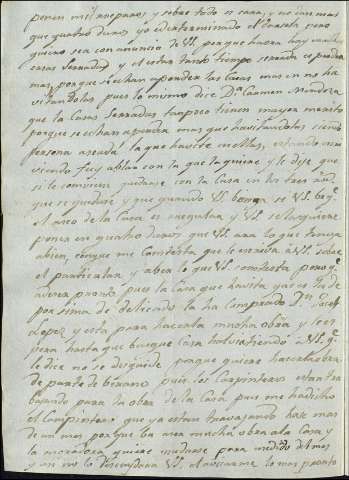 ponen mil reparos y sobre todo es cara, y no dan mas
que quatro duros yo e determinado el
quiero sea con anuncio de VS. porque haora hay muchas
casas Serradas y el estar tanto tiempo serrada se pierde
mas, porque se echan a perder las Casas mas en no ha
vitandolas pues lo mismo dice Dn. Carmen Mendoza
que la Casas Serradas tanpoco tienen mayor merito
porque se echan a perder mas que havitandolas siendo
persona aseada la que havite en ellas, estando es
viendo fuy ablar con la que la quiere y le dije que
si le conviene quedarse con la Casa en los tres
que se quedare y que quando VS. benga se VS.
el aseo de la Casa es regular y VS. se la quiere
poner en quatro duros que VS. ara lo que tenga
abien, conque me Contesta que le escriva a VS. sobre
el particular y abea lo que VS. contesta porque
avera pronto pues la Casa que havita
por sima de delicado la ha Comprado Dn. Josef
Lopez y esta para haserla mucha obra y
pera hasta que busque Casa
le dice no se descuide porque quiere haserla obra
de parte de berano pues los Carpinteros estan tra
bajando para la obra de la Casa pues me ha dicho
el Carpintero que ya estan travajando hase mas
de un mes porque ba a ser mucha obra a la Casa y
la moradora quiere mudarse para medio del mes
y asi no lo descuyda VS. el avisarme lo mas pronto